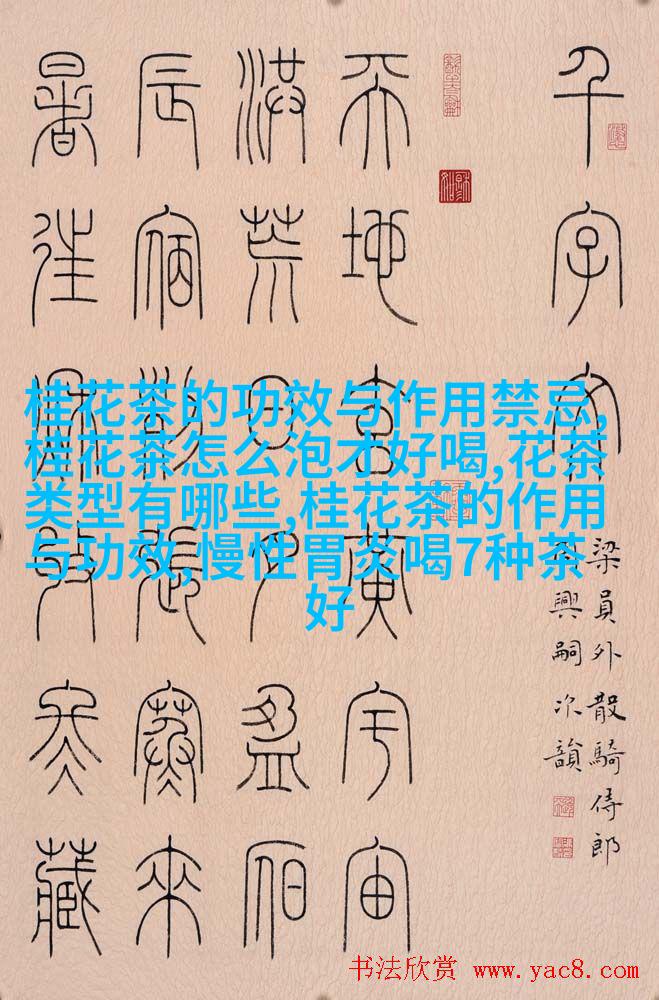 千字文
梁員外散騎侍郎
周興嗣次韻
天地玄黃宇宙
洪荒日月盈昃
辰宿列張寒來
暑往秋收冬藏
桂花茶的功效与作用禁忌,
桂花茶怎么泡才好喝,花茶
类型有哪些,桂花茶的作用
与功效,慢性胃炎喝7种茶
好
书法欣赏 www.yac8.com